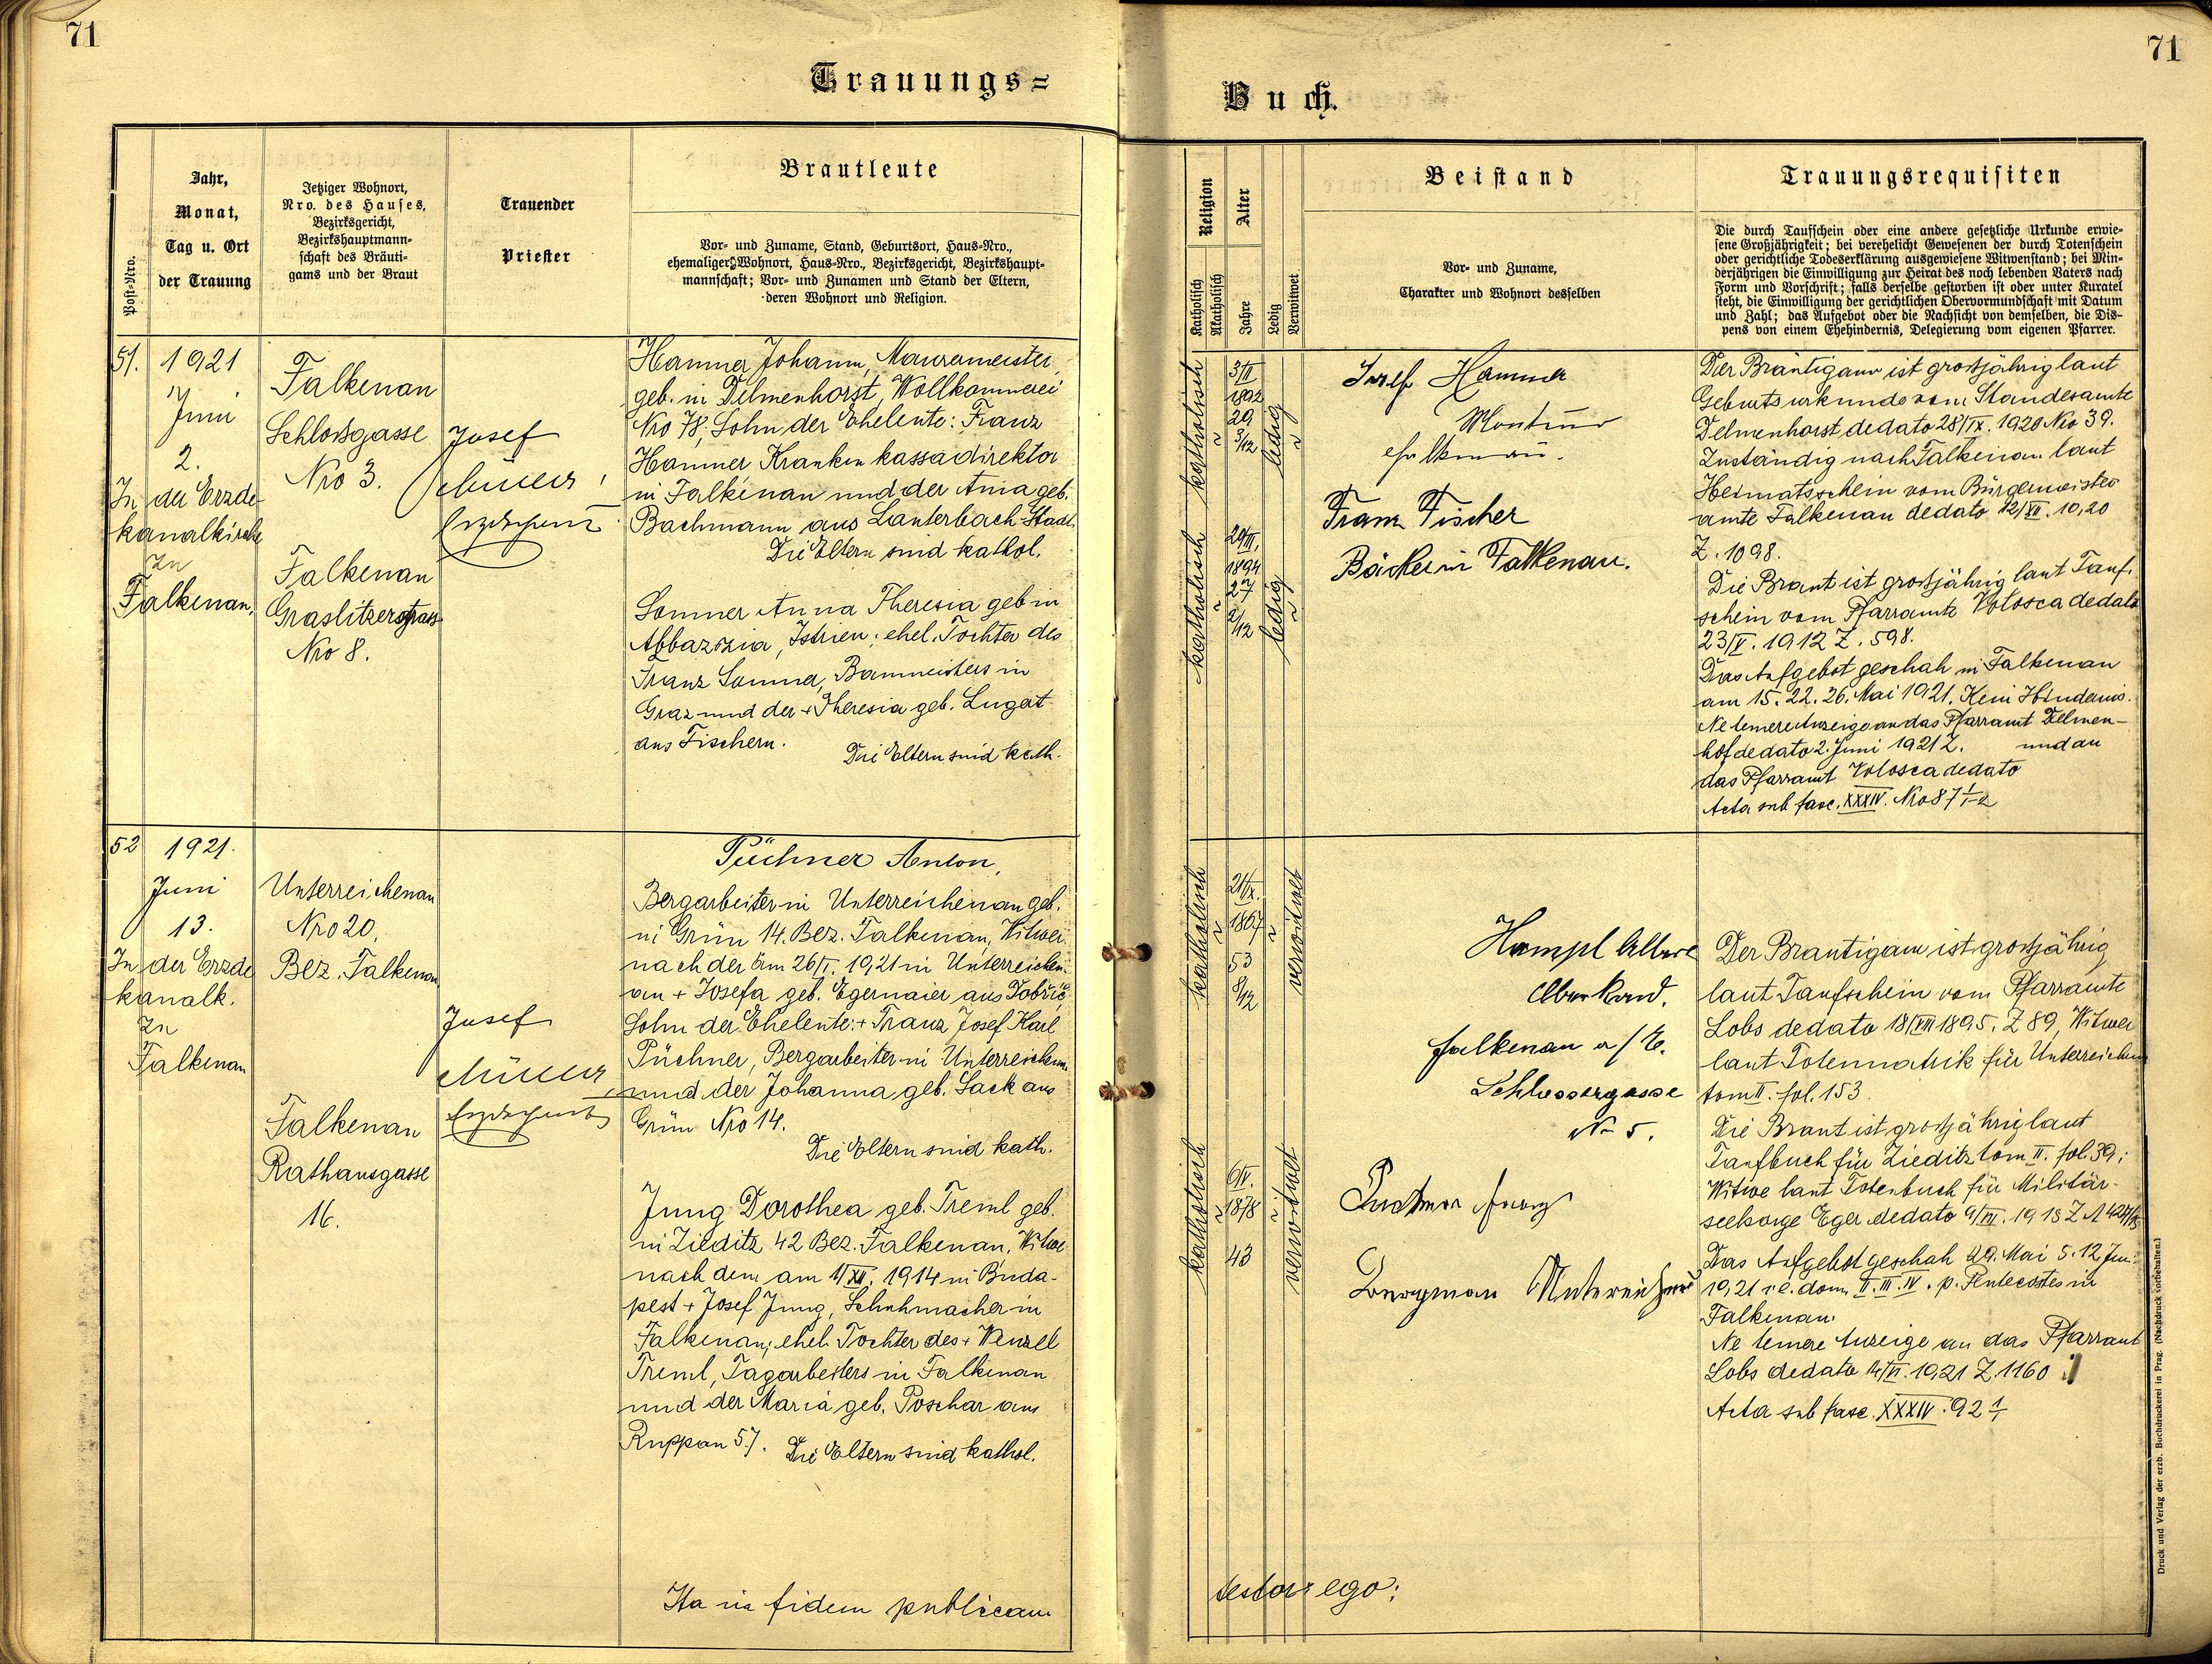 71
Trauungs=
Post-Nro.
Jahr,
Monat,
Tag u. Ort
der Trauung
Jetziger Wohnort,
Nro. des Hauses,
Bezirksgericht,
Bezirkshauptmann-
schaft des Bräuti-
gams und der Braut
Trauender
Priester
Brautleute
Vor- und Zuname, Stand, Geburtsort, Haus-Nro.,
ehemaliger Wohnort, Haus-Nro., Bezirksgericht, Bezirkshaupt-
mannschaft; Vor- und Zunamen und Stand der Eltern,
deren Wohnort und Religion.
51.
1921
Juni
2.
In der Erzde-
kanalkirche
in
Falkenau.
Falkenau
Schlossgasse
Nro 3.
Falkenau
Graslitzerstrass
Nro 8.
Josef
Müller,
Hammer Johann, Maurermeister,
geb. in Delmenhorst, Wollkämmerei
Nro 78; Sohn der Eheleute: Franz
Hammer Krankenkassadirektor
in Falkenau und der Anna geb.
Bachmann aus Lauterbach Stadt.
Die Eltern sind kathol.
Sommer Anna Theresia geb in
Abbazzia, Istrien; ehel. Tochter des
Franz Sommer, Baumeisters in
Graz und der + Theresia geb. Lugert
aus Fischern.
Die Eltern sind kath.
52
1921.
Juni
13.
In der Erzde
kanalk.
in
Falkenau
Unterreichenau
Nro 20.
Bez. Falkenau
Falkenau
Rathausgasse
16.
Josef
Müller,
Püchner Anton,
Bergarbeiter in Unterreichenau geb.
in Grün 14. Bez. Falkenau, Witwer
nach der am 26/I. 1921 in Unterreichen-
au + Josefa geb. Egermaier aus Dobřič
Sohn der Eheleute: + Franz Josef Karl
Püchner, Bergarbeiter in Unterreichenau
und der Johanna geb. Sack aus
Grün Nro 14.
Die Eltern sind kath.
Jung Dorothea geb. Treml geb.
in Zieditz 42 Bez. Falkenau, Witwe
nach dem am 1/XII. 1914 in Buda-
pest + Josef Jung, Schuhmacher in
Falkenau; ehel. Tochter des + Wenzel
Treml, Tagarbeiters in Falkenau
und der Maria geb. Poschar aus
Ruppau 57.
Die Eltern sind kathol.
Ita in fidem publicam
71
Buch.
Religion
Katholisch
Akatholisch
Alter
Jahre
Ledig
Verwitwet
Beistand
Vor- und Zuname,
Charakter und Wohnort desselben
Trauungsrequisiten
Die durch Taufschein oder eine andere gesetzliche Urkunde erwie-
sene Großjährigkeit; bei verehelicht Gewesenen der durch Totenschein
oder gerichtliche Todeserklärung ausgewiesene Witwenstand; bei Min-
derjährigen die Einwilligung zur Heirat des noch lebenden Vaters nach
Form und Vorschrift; falls derselbe gestorben ist oder unter Kuratel
steht, die Einwilligung der gerichtlichen Obervormundschaft mit Datum
und Zahl; das Aufgebot oder die Nachsicht von demselben, die Dis-
pens von einem Ehehindernis, Delegierung vom eigenen Pfarrer.
katholisch
3/II
1892
29
3/12
ledig
katholisch
29/III.
1894
27
2/12
ledig
Josef Hammer
Falkenau.
Franz Fischer
Bäcker in Falkenau.
Der Bräutigam ist grossjährig laut
Geburtsurkunde vom Standesamte
Delmenhorst dedato 28/IX. 1920 Nro 39.
Zuständig nach Falkenau laut
Heimatsschein vom Bürgermeister
amte Falkenau dedato 12/XII. 1920
Z. 1098.
Die Braut ist grossjährig laut Tauf-
schein vom Pfarramte Volosca dedato
23/V. 1912 Z. 598.
Das Aufgebot geschah in Falkenau
am 15. 22. 26. Mai 1921. Kein Hindernis.
Ne temere Anzeige an das Pfarramt Delmen-
hof dedato 2. Juni 1921 Z. und an
das Pfarramt Volosca dedato
Acta sub fasc. XXXIV. Nro 87 1-2
katholisch
21/IX.
1867
53
8/12
verwitwet
katholisch
6/IV.
1878
43
verwitwet
Hampl Albert
Oberkond.
Falkenau a/E.
Schlossergasse
No 5.
Püchner Franz
Bergman Unterreichenau
Der Brautigam ist grossjährig
laut Taufschein vom Pfarramte
Lobs dedato 18/VIII 1895. Z 89, Witwer
laut Totenmatrik für Unterreichenau
tom II. fol. 153.
Die Braut ist grossjährig laut
Taufbuch für Zieditz tom II. fol. 39;
Witwe laut Totenbuch für Militär-
seelsorge Eger dedato
Das Aufgebot geschah 29. Mai 5. 12 Juni
1921 i. e. dom. II. III. IV. p. Pentecostes in
Falkenau.
Ne temere Anzeige an das Pfarramt
Lobs dedato 14/VI. 1921 Z. 1160
Acta sub fasc. XXXIV. 92 1/1
testor ego:
Druck und Verlag der erzb. Buchdruckerei in Prag. (Nachdruck vorbehalten.)